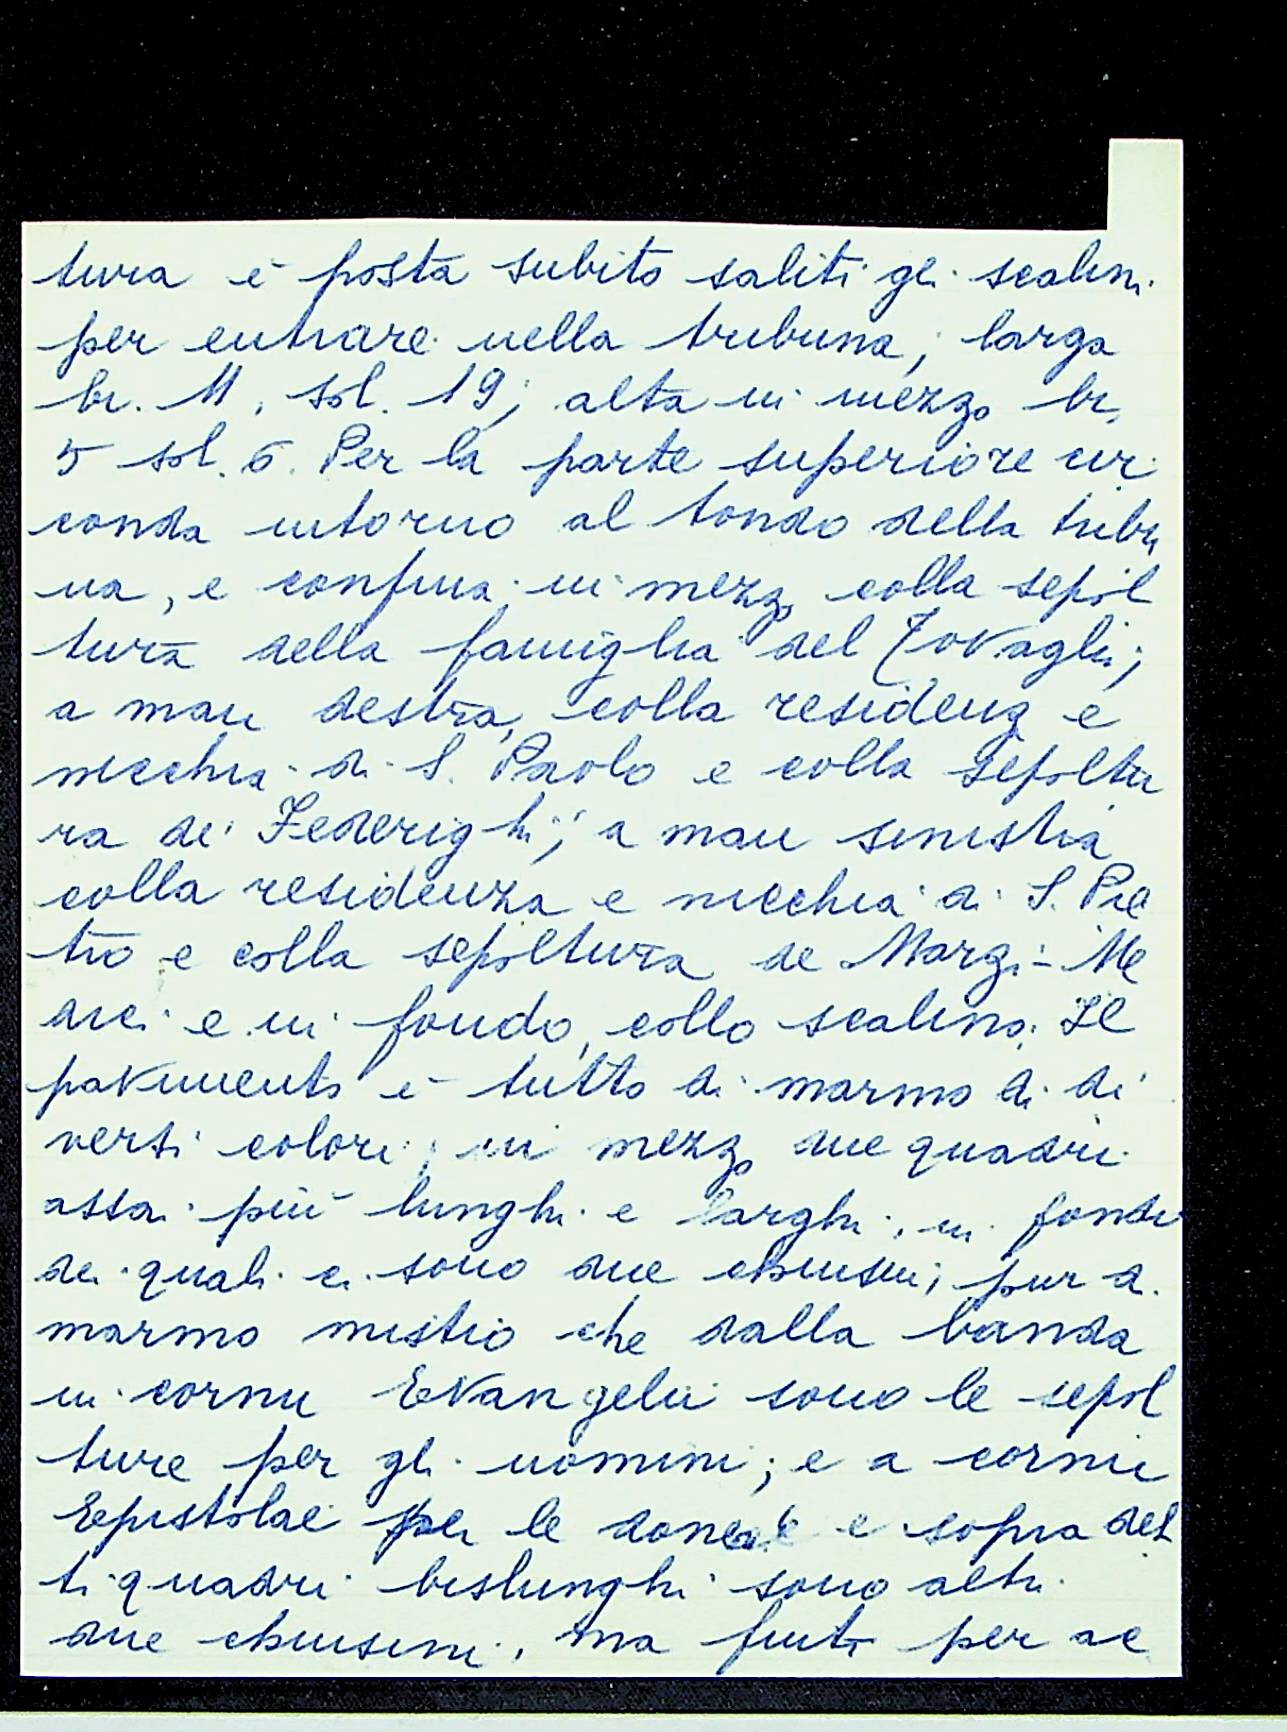 tura è posta subito saliti gli scalini
per entrare nella tribuna; larga
br. 11, sol. 19; alta in mezzo br.
5 sol. 6. Per la parte superiore cir
conda intorno al tondo della tribu
na, e confina in mezzo colla sepol
tura della famiglia del Tovaglia;
a man destra, colla residenza e
nicchia di S. Paolo e colla sepoltu
ra dei Federighi; a man sinistra
colla residenza e nicchia di S. Pie
tro e colla sepoltura de Margi-Me
dici e in fondo, collo scalino. Il
pavimento è tutto di marmo di di
versi colori; in mezzo due quadri
assai più lunghi e larghi, in fondo
dei quali ci sono due chiusini, pur di
marmo mistio che dalla banda
in cornu Evangelii sono le sepol
ture per gli uomini; e a cornu
Epistolae per le donne e sopra det
ti quadri bislunghi sono altri
due chiusini, ma finti per ac